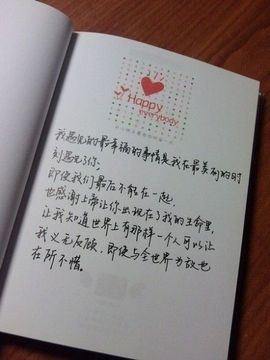 Happy
everybody
我遇见的最幸福的事情是我在最美丽的时
刻遇见了你、
即使我们最后不能在一起,
也感谢上帝让你出现在了我的生命里,
让我知道世界上有那样一个人可以让
我义无反顾,即使与全世界为敌也
在所不惜。